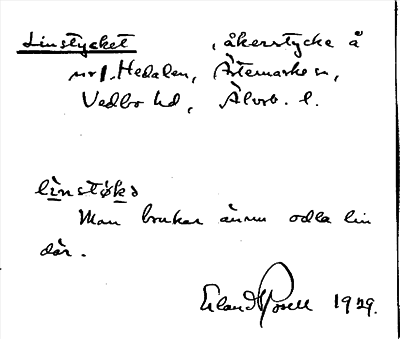 Linstycket , åkerstycke å
nr 1. Hedalen, Ärtemarks sn,
Vedbo hd, Älvsb. l.
lìnstø̀kə
Man brukar ännu odla lin
där.
Erland Rosell 1929.